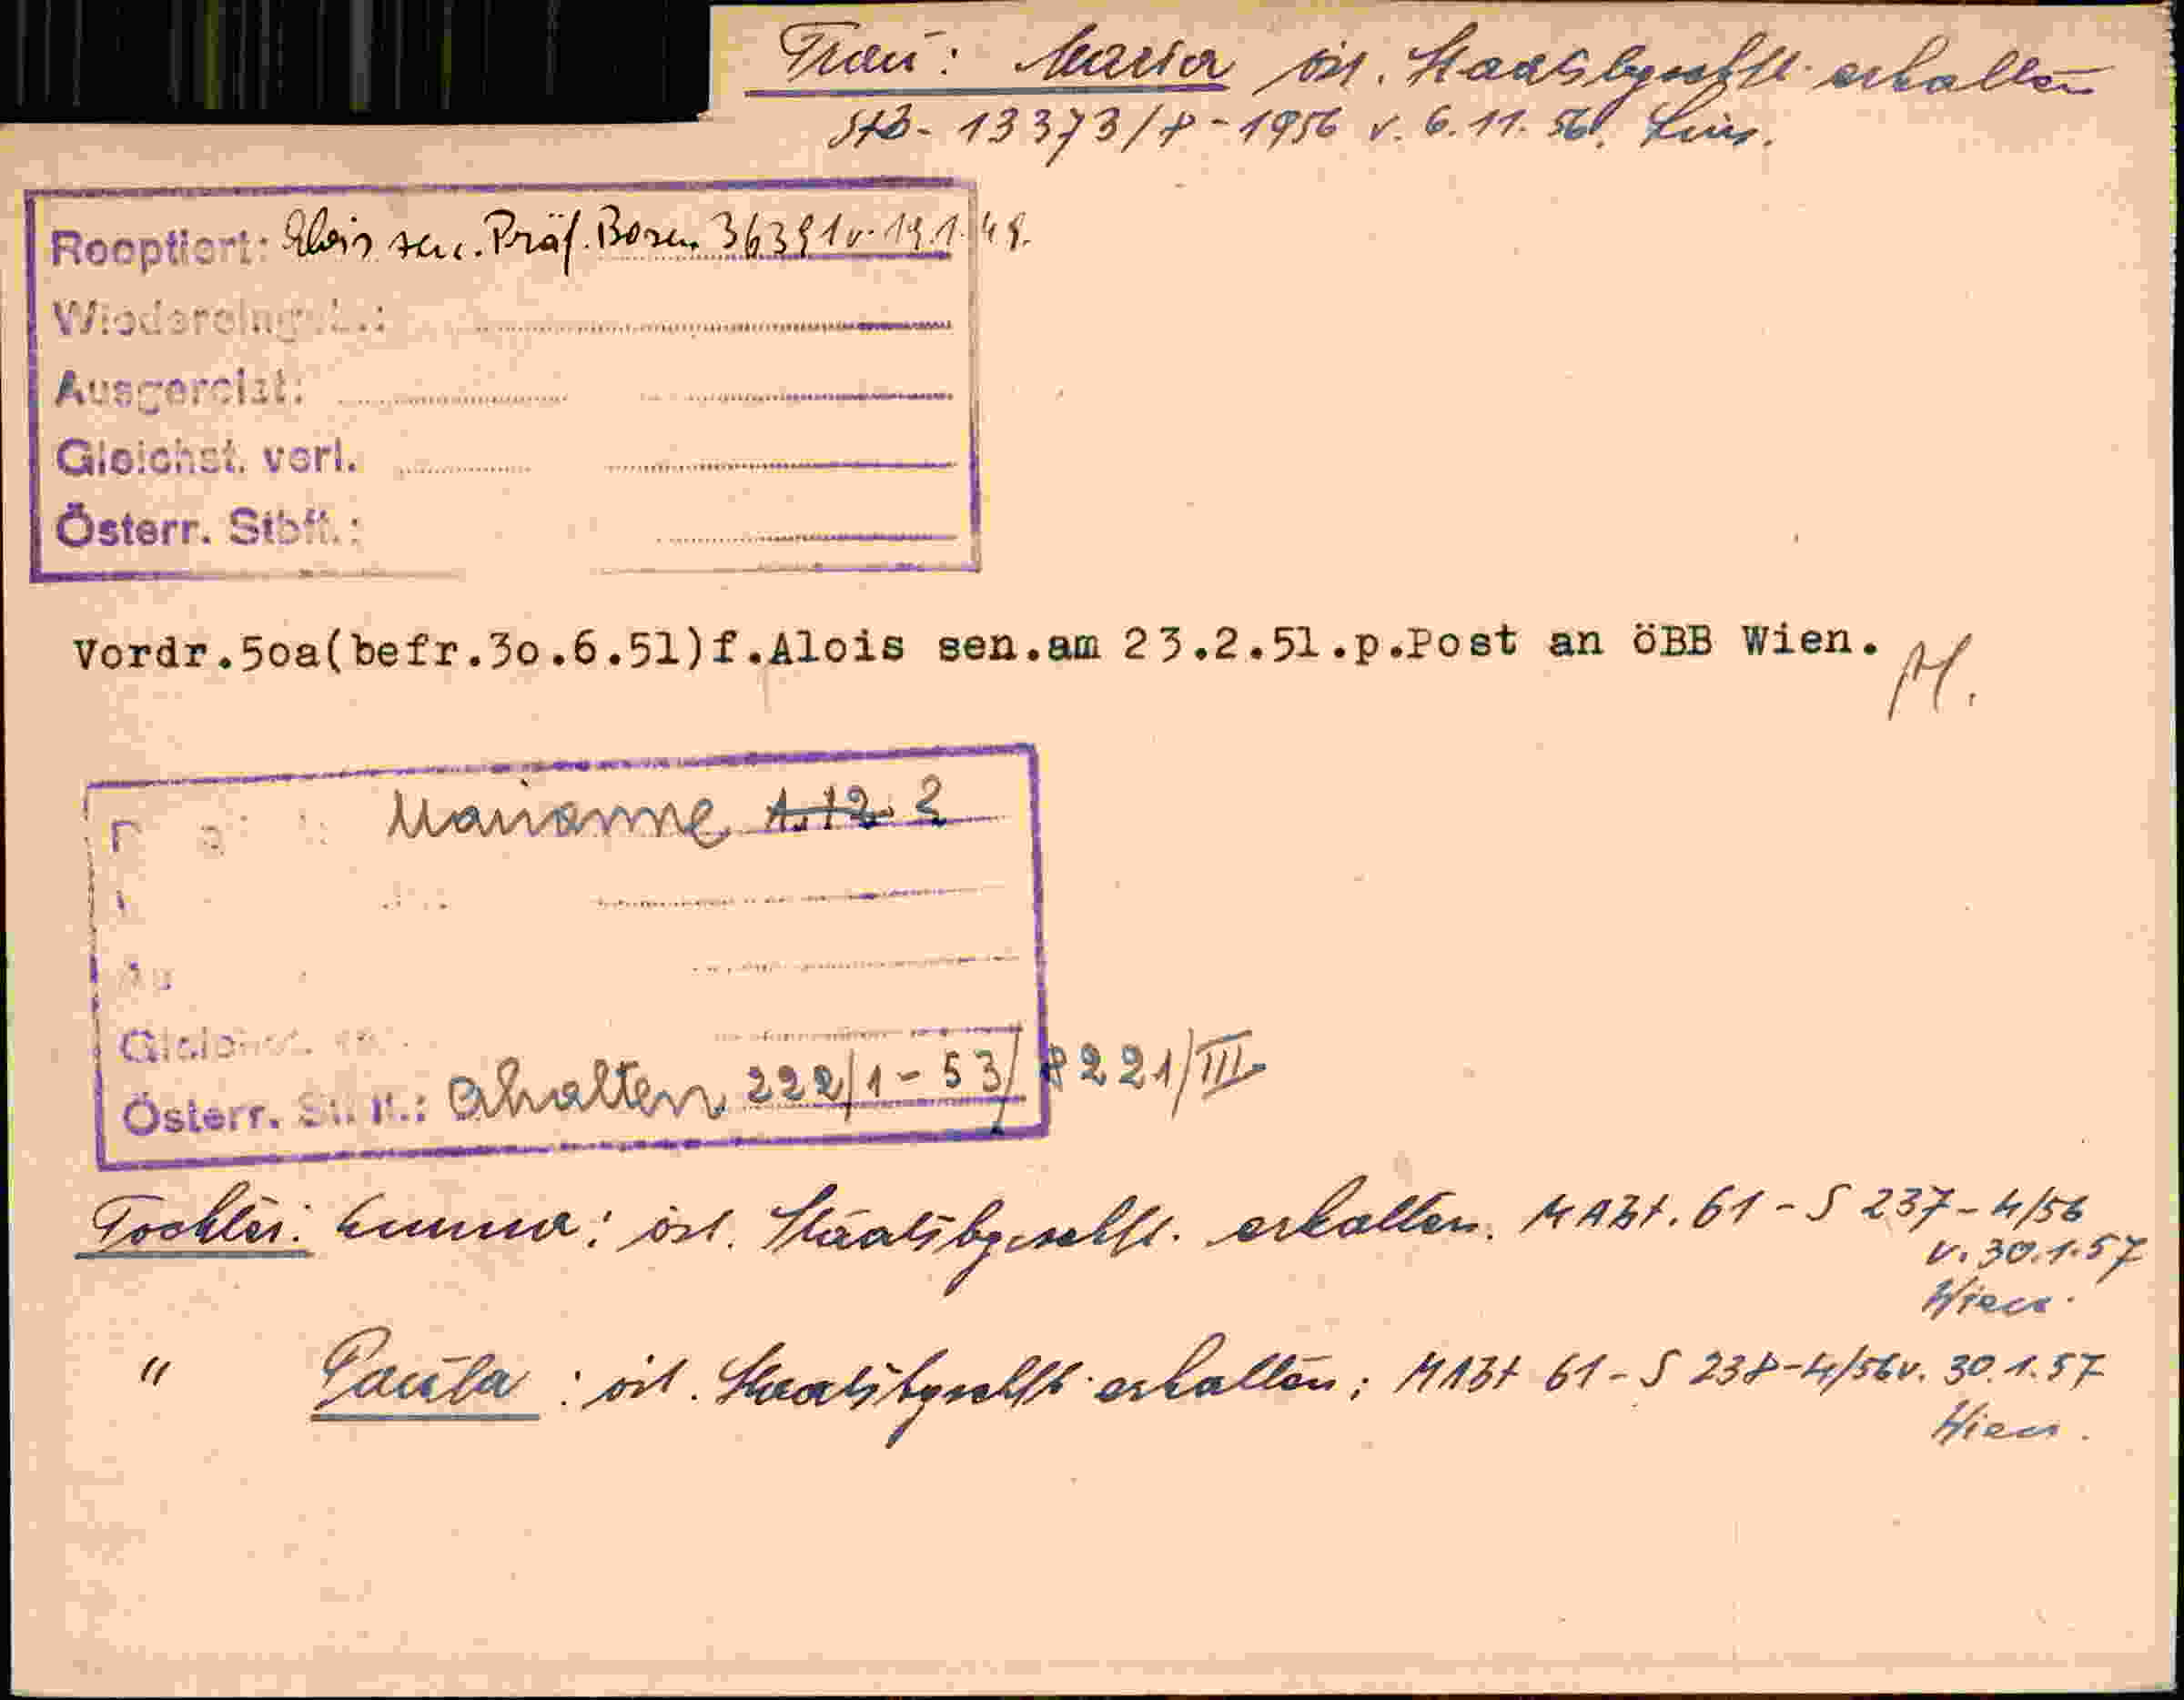 Frau: Maria öst. Staatsbgschft. erhalten
Stb- 13373/8-1956 v. 6.11.56. Linz.
Reoptiert: Alois sen. Präf. Bozen 36391 v. 19.1.49.
Wiedereingeb.:
Ausgereist:
Gleichst. verl.
Österr. Stbft.:
Vordr.5oa(befr.3o.6.51)f.Alois sen.am 23.2.51.p.Post an öBB Wien.
Marianne 1.12. 2
Gleichst.
Österr. St. ft.: erhalten 222/1-53/8221/III.
Tochter: Emma: öst. Staatsbgschft. erhalten. MABt. 61-S 237-4/56
v. 30.1.57
Wien.
" Paula: öst. Staatsbgschft. erhalten; MABt 61-S 238-4/56 v. 30.1.57
Wien.